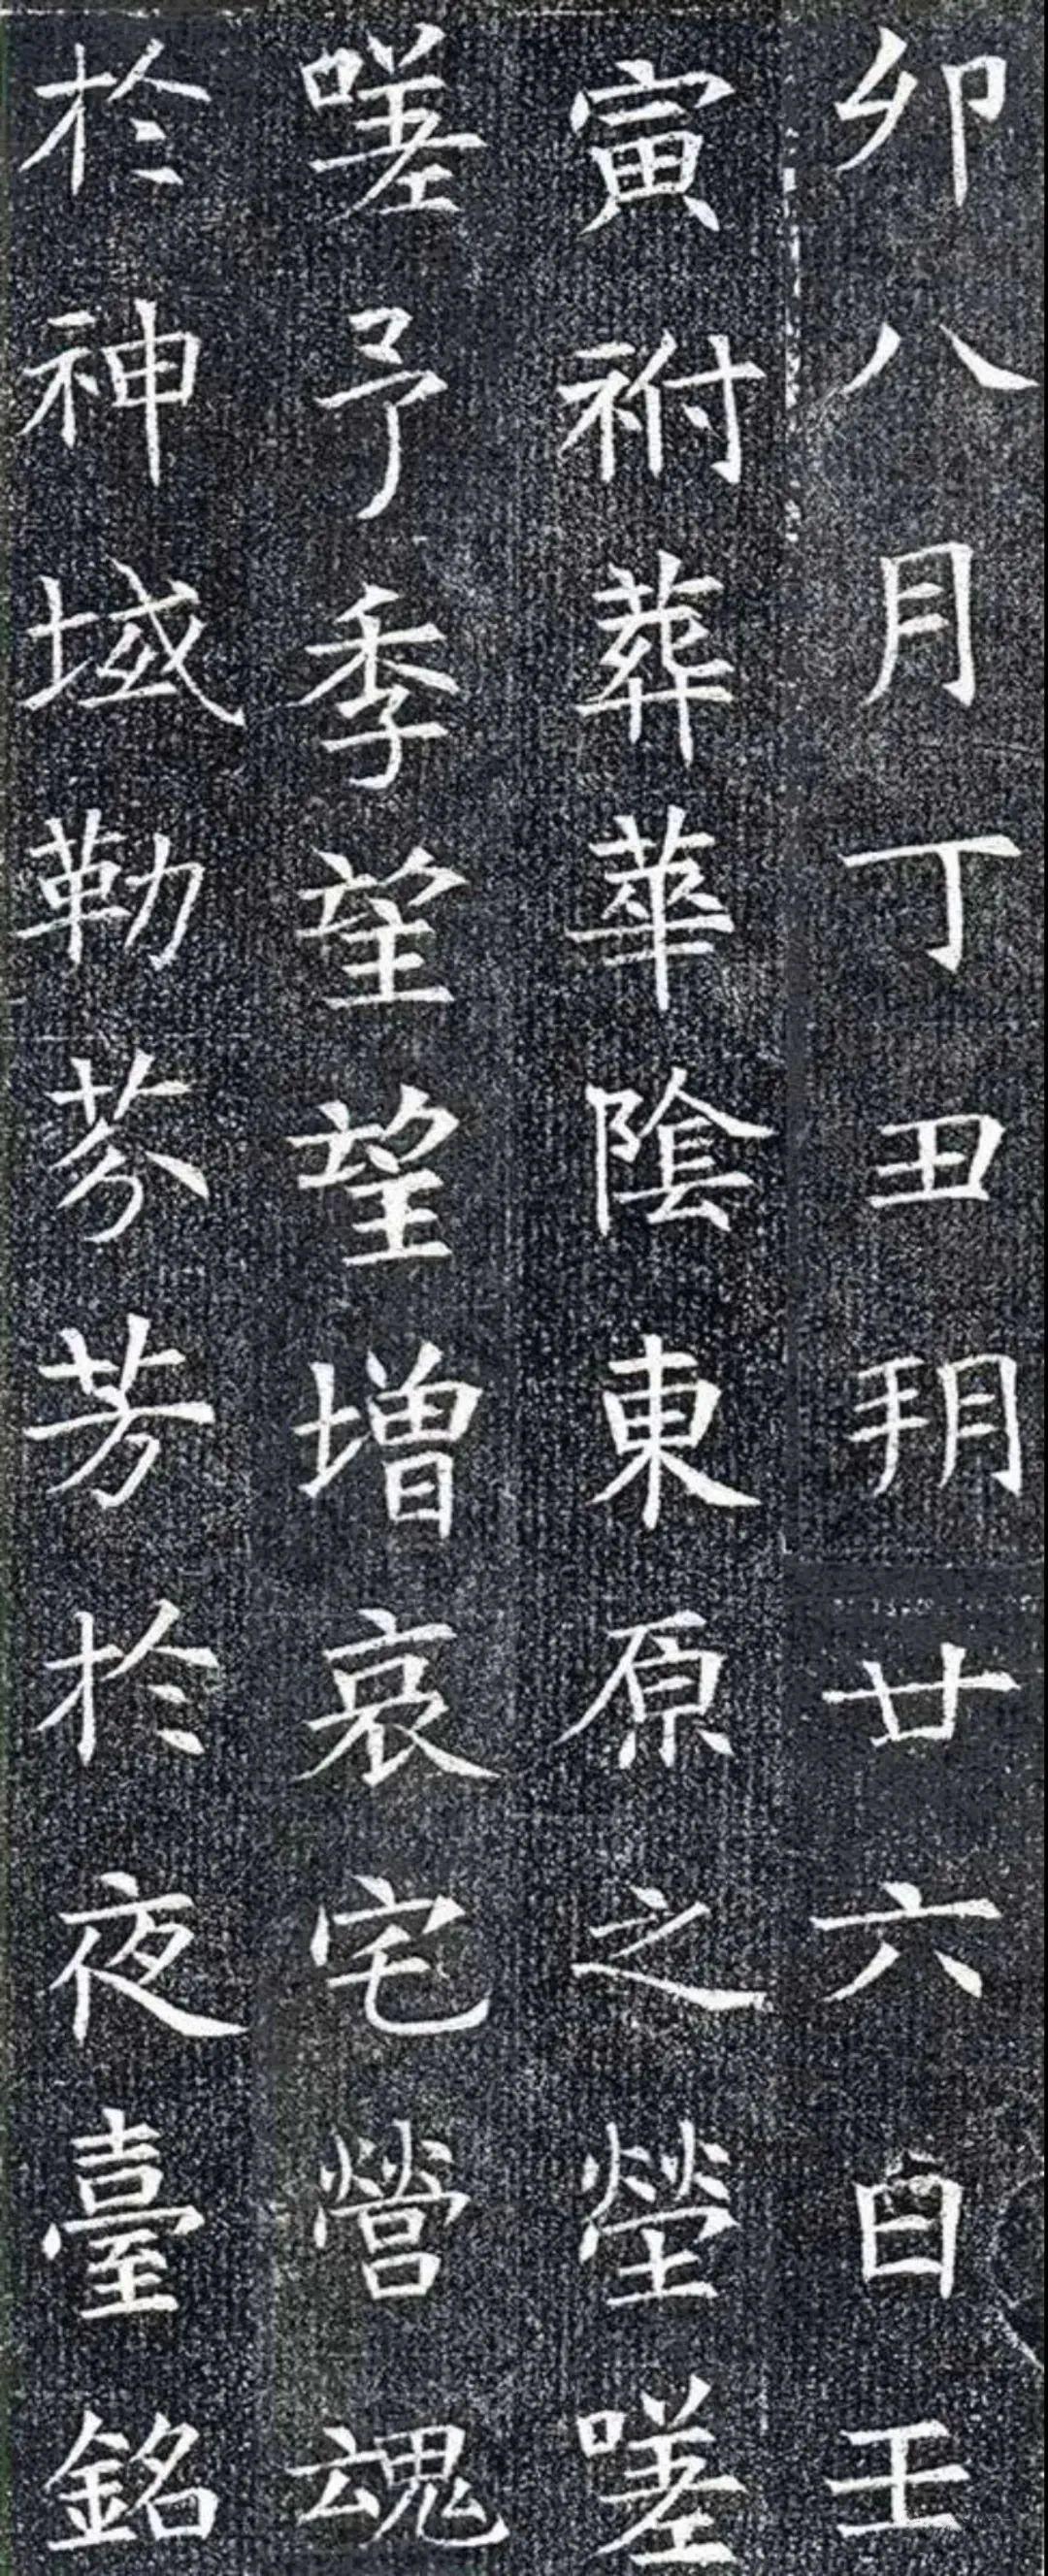 卯八月丁丑玥廿六日壬
寅祔葬華陰東原之塋嗟
嗟予季望望增哀宅營魂
於神域勒芬芳於夜臺銘